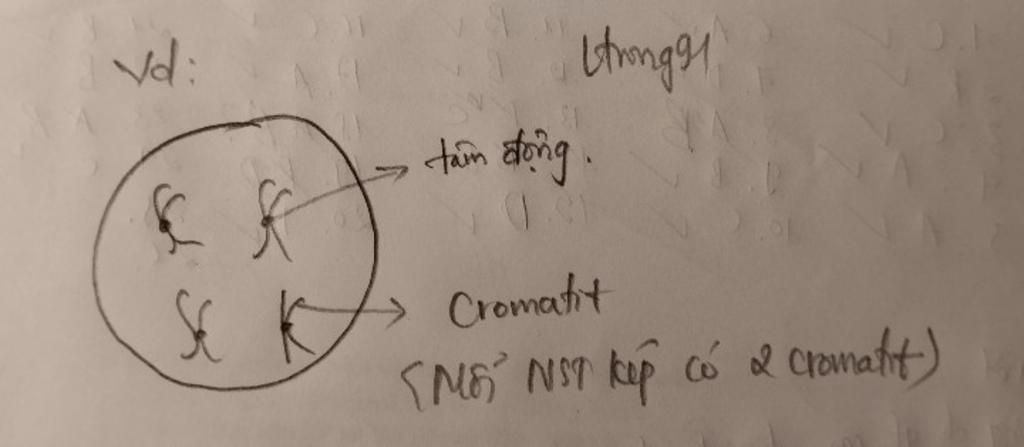 Vd:
tâm động.
Cromatit
(Mỗi NST kép có 2 cromatit)